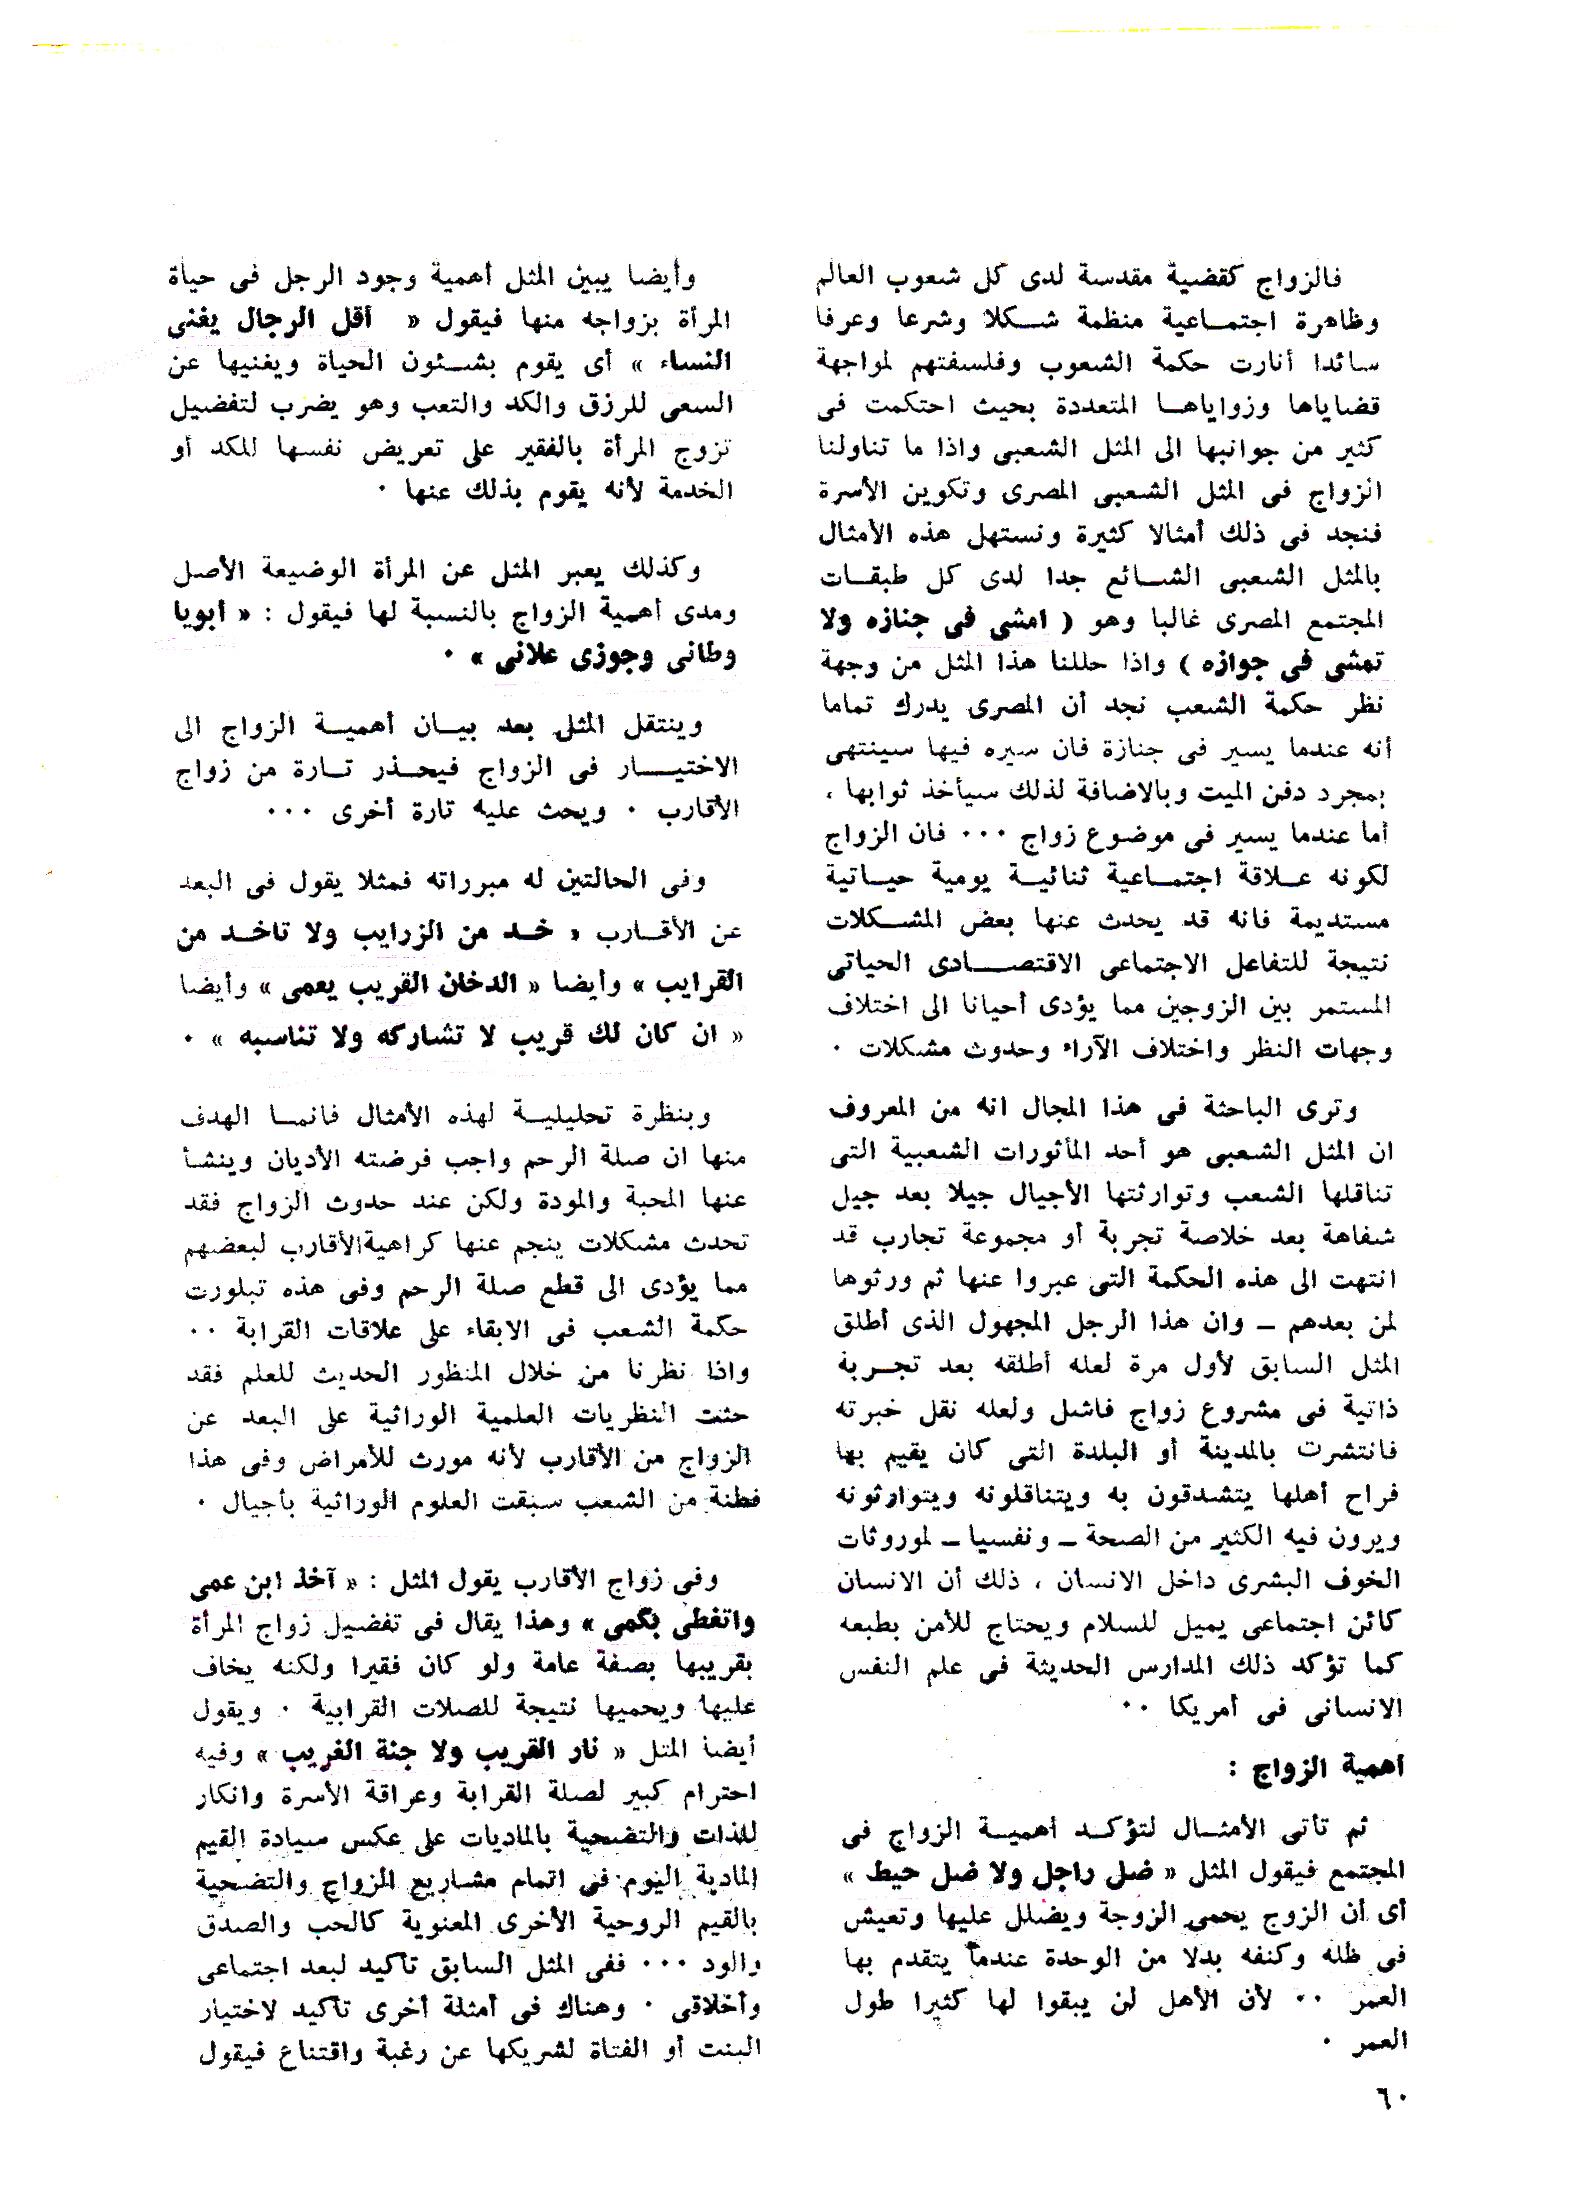 فالزواج كقضية مقدسة لدى كل شعوب العالم
وظاهرة اجتماعية منظمة شكلا وشرعا وعرفا
سائدا أنارت حكمة الشعوب وفلسفتهم لمواجهة
قضاياها وزواياها المتعددة بحيث احتكمت فى
كثير من جوانبها الى المثل الشعبى واذا ما تناولنا
الزواج فى المثل الشعبى المصرى وتكوين الأسرة
فنجد فى ذلك أمثالا كثيرة ونستهل هذه الأمثال
بالمثل الشعبى الشائع جدا لدى كل طبقات
المجتمع المصرى غالبا وهو ( امشى فى جنازه ولا
تمشى فى جوازه ) واذا حللنا هذا المثل من وجهة
نظر حكمة الشعب نجد أن المصرى يدرك تماما
أنه عندما يسير فى جنازة فان سيره فيها سينتهى
بمجرد دفن الميت وبالاضافة لذلك سيأخذ ثوابها ،
أما عندما يسير فى موضوع زواج ٠٠٠ فان الزواج
لكونه علاقة اجتماعية ثنائية يومية حياتية
مستديمة فانه قد يحدث عنها بعض المشكلات
نتيجة للتفاعل الاجتماعى الاقتصادى الحياتى
المستمر بين الزوجين مما يؤدى أحيانا الى اختلاف
وجهات النظر واختلاف الآراء وحدوث مشكلات ٠
وترى الباحثة فى هذا المجال انه من المعروف
ان المثل الشعبى هو أحد المأثورات الشعبية التى
تناقلها الشعب وتوارثتها الأجيال جيلا بعد جيل
شفاهة بعد خلاصة تجربة أو مجموعة تجارب قد
انتهت الى هذه الحكمة التى عبروا عنها ثم ورثوها
لمن بعدهم ــ وان هذا الرجل المجهول الذى أطلق
المثل السابق لأول مرة لعله أطلقه بعد تجربة
ذاتية فى مشروع زواج فاشل ولعله نقل خبرته
فانتشرت بالمدينة أو البلدة التى كان يقيم بها
فراح أهلها يتشدقون به ويتناقلونه ويتوارثونه
ويرون فيه الكثير من الصحة ــ ونفسيا ــ لموروثات
الخوف البشرى داخل الانسان ، ذلك أن الانسان
كائن اجتماعى يميل للسلام ويحتاج للأمن بطبعه
كما تؤكد ذلك المدارس الحديثة فى علم النفس
الانسانى فى أمريكا ٠٠
أهمية الزواج :
ثم تأتى الأمثال لتؤكد أهمية الزواج فى
المجتمع فيقول المثل « ضل راجل ولا ضل حيط »
أى أن الزوج يحمى الزوجة ويضلل عليها وتعيش
فى ظله وكنفه بدلا من الوحدة عندما يتقدم بها
العمر ٠٠ لأن الأهل لن يبقوا لها كثيرا طول
العمر ٠
وأيضا يبين المثل أهمية وجود الرجل فى حياة
المرأة بزواجه منها فيقول « أقل الرجال يغنى
النساء » أى يقوم بشئون الحياة ويغنيها عن
السعى للرزق والكد والتعب وهو يضرب لتفضيل
تزوج المرأة بالفقير على تعريض نفسها للكد أو
الخدمة لأنه يقوم بذلك عنها ٠
وكذلك يعبر المثل عن المرأة الوضيعة الأصل
ومدى أهمية الزواج بالنسبة لها فيقول : « أبويا
وطانى وجوزى علانى » ٠
وينتقل المثل بعد بيان أهمية الزواج الى
الاختيار فى الزواج فيحذر تارة من زواج
الأقارب ٠ ويحث عليه تارة أخرى ٠٠٠
وفى الحالتين له مبرراته فمثلا يقول فى البعد
عن الأقارب « خد من الزرايب ولا تاخد من
القرايب » وأيضا « الدخان القريب يعمى » وأيضا
« ان كان لك قريب لا تشاركه ولا تناسبه » ٠
وبنظرة تحليلية لهذه الأمثال فانما الهدف
منها ان صلة الرحم واجب فرضته الأديان وينشأ
عنها المحبة والمودة ولكن عند حدوث الزواج فقد
تحدث مشكلات ينجم عنها كراهية الأقارب لبعضهم
مما يؤدى الى قطع صلة الرحم وفى هذه تبلورت
حكمة الشعب فى الابقاء على علاقات القرابة ٠٠
واذا نظرنا من خلال المنظور الحديث للعلم فقد
حثت النظريات العلمية الوراثية على البعد عن
الزواج من الأقارب لأنه مورث للأمراض وفى هذا
فطنة من الشعب سبقت العلوم الوراثية بأجيال ٠
وفى زواج الأقارب يقول المثل : « آخد ابن عمى
واتغطى بكمى » وهذا يقال فى تفضيل زواج المرأة
بقريبها بصفة عامة ولو كان فقيرا ولكنه يخاف
عليها ويحميها نتيجة للصلات القرابية ٠ ويقول
أيضا المثل « نار القريب ولا جنة الغريب » وفيه
احترام كبير لصلة القرابة وعراقة الأسرة وانكار
للذات والتضحية بالماديات على عكس سيادة القيم
المادية اليوم فى اتمام مشاريع الزواج والتضحية
بالقيم الروحية الأخرى المعنوية كالحب والصدق
والود ٠٠٠ ففى المثل السابق تأكيد لبعد اجتماعى
وأخلاقى ٠ وهناك فى أمثلة أخرى تأكيد لاختيار
البنت أو الفتاة لشريكها عن رغبة واقتناع فيقول
٦٠